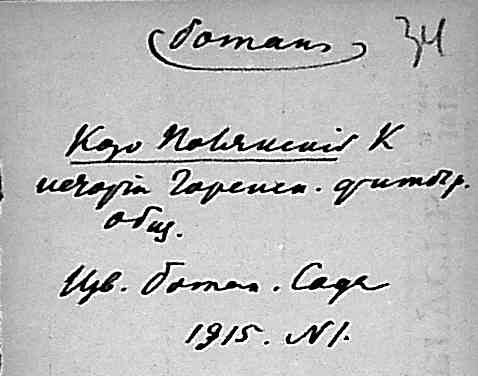 ботан 34
Козо Полянский К
истории Горенск. фитогр.
общ.
Изв. ботан. Сада
1915. N1.